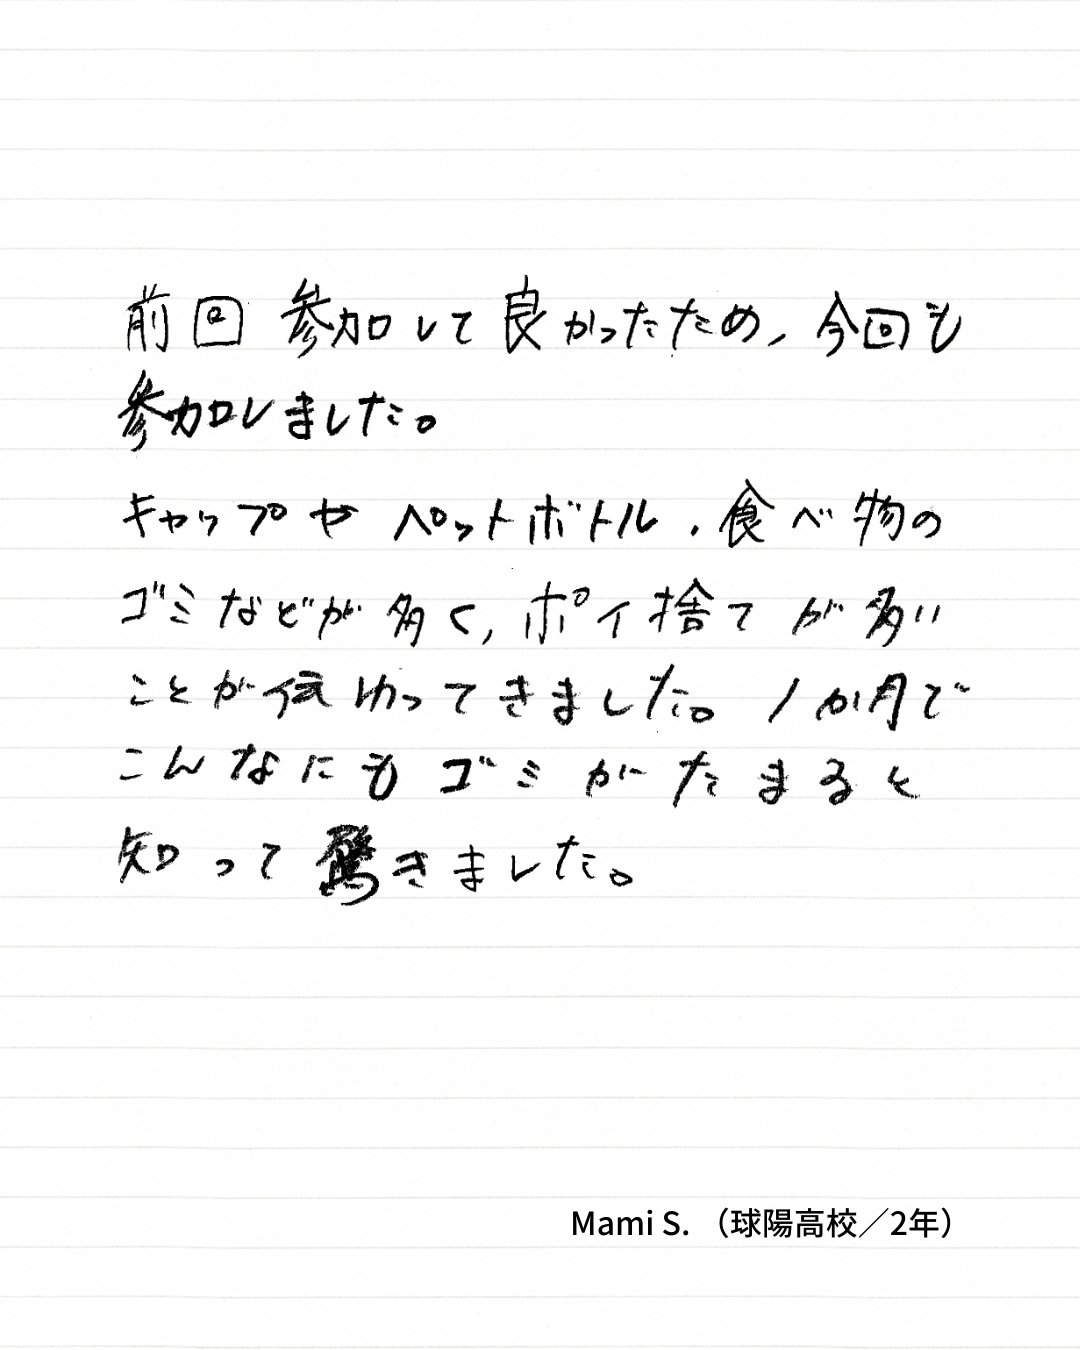 前回参加して良かったため、今回も
参加しました。
キャップやペットボトル、食べ物の
ゴミなどが多く、ポイ捨てが多い
ことが伝わってきました。1か月で
こんなにもゴミがたまると
知って驚きました。
Mami S. （球陽高校／2年）